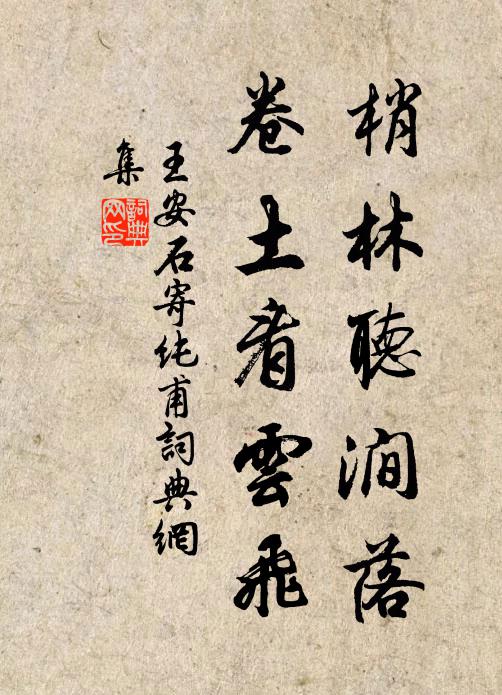 梢林聽澗落
卷土看雲飛
王安石寄純甫詞典網
集
詞典
网印